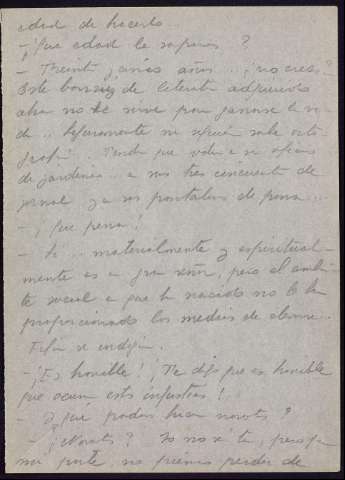 edad de hacerlo
- ¿Que edad le supones?
- Treinta y cinco años... ¿no crees?
Este de literato adquirido
ahora no le sirve para ganarse la vi
da... Seguramente ni siquiera sabe orto
grafía... Tendrá que volver a su oficio
de jardinero... a sus tres cincuenta de
jornal y a sus pantalones de pana...
- ¡Que pena!
- Si... materialmente y espiritual-
mente es un gran señor, pero el ambien
te social en que ha nacido no le ha
proporcionado los medios de elevarse...
se indigna.
- ¡Es horrible! ¡Te digo que es horrible
que ocurran estas injusticias!
- Y ¿qué podemos hacer nosotros?
- ¿Nosotros? Yo no sé tu, pero por
mi parte, no pienso perder de